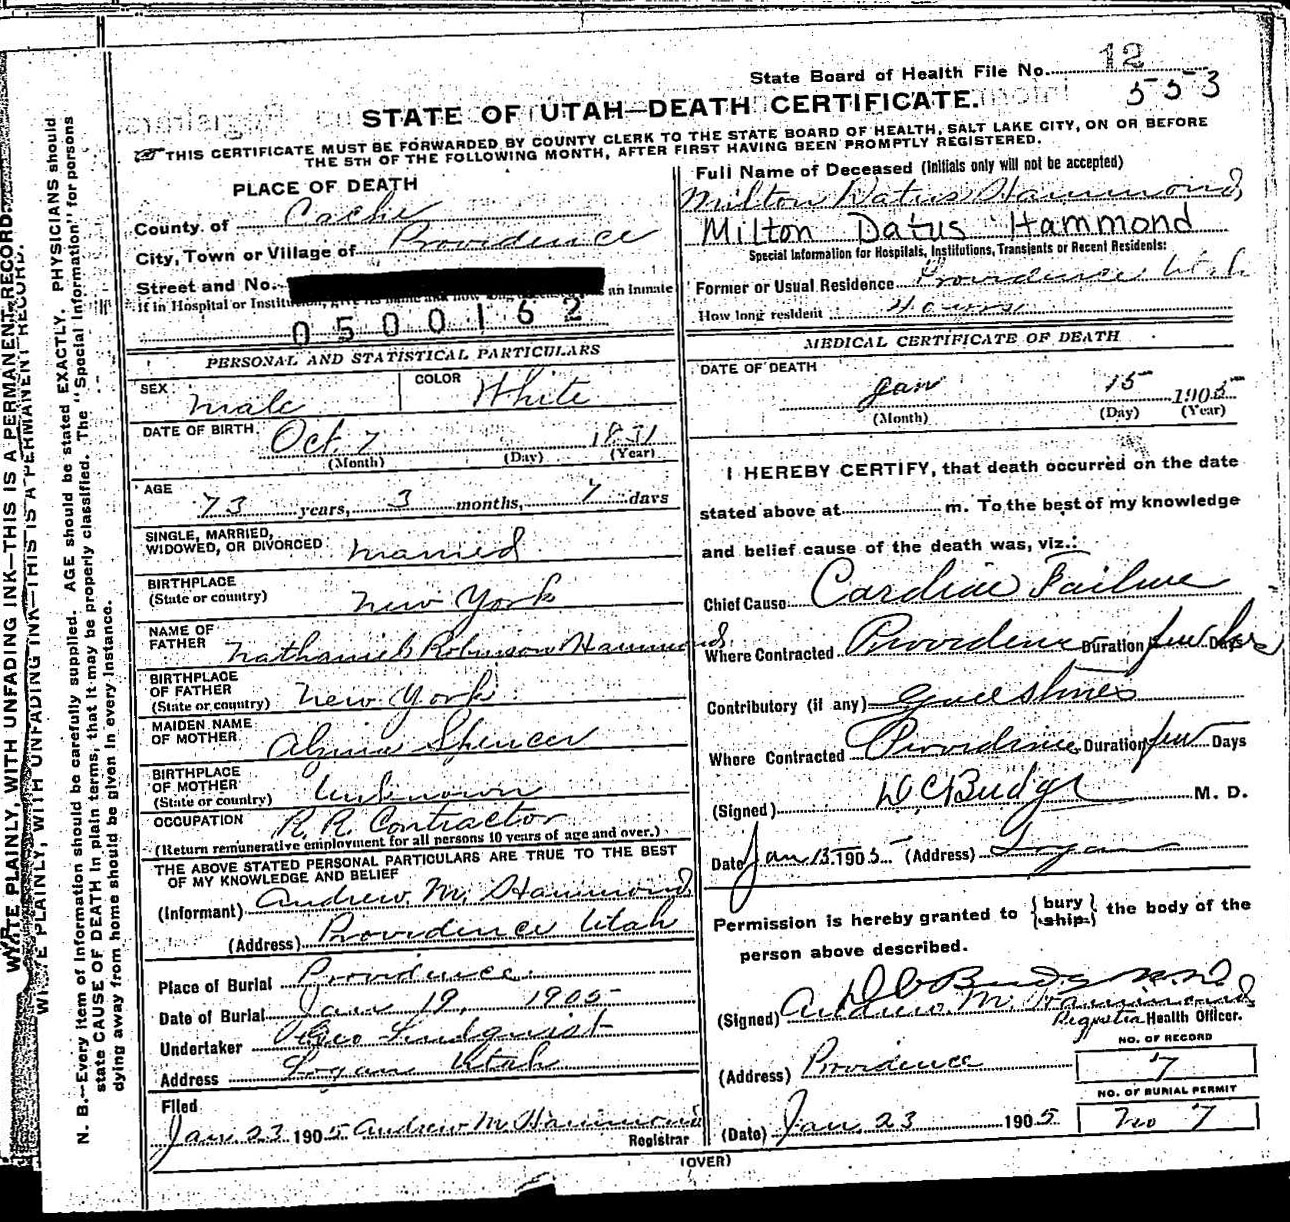 State Board of Health File No. 12
553
STATE OF UTAH—DEATH CERTIFICATE.
THIS CERTIFICATE MUST BE FORWARDED BY COUNTY CLERK TO THE STATE BOARD OF HEALTH, SALT LAKE CITY, ON OR BEFORE
THE 5TH OF THE FOLLOWING MONTH, AFTER FIRST HAVING BEEN PROMPTLY REGISTERED.
PLACE OF DEATH
County of Cache
City, Town or Village of Providence
Street and No.
If in Hospital or Institution, give its name and how long an inmate
0500162
PERSONAL AND STATISTICAL PARTICULARS
SEX Male COLOR White
DATE OF BIRTH Oct. 7 1831
(Month) (Day) (Year)
AGE
73 years, 3 months, 7 days
SINGLE, MARRIED,
WIDOWED, OR DIVORCED Married
BIRTHPLACE
(State or country) New York
NAME OF
FATHER Nathaniel Robinson Hammond
BIRTHPLACE
OF FATHER
(State or country) New York
MAIDEN NAME
OF MOTHER Spencer
BIRTHPLACE
OF MOTHER
(State or country) Unknown
OCCUPATION R. R. Contractor
(Return remunerative employment for all persons 10 years of age and over.)
THE ABOVE STATED PERSONAL PARTICULARS ARE TRUE TO THE BEST
OF MY KNOWLEDGE AND BELIEF
(Informant) Andrew M. Hammond
(Address) Providence Utah
Place of Burial Providence
Date of Burial Jan 19, 1905
Undertaker Geo Lindquist
Address Logan Utah
Filed
Jan 23 1905 Andrew M. Hammond
Registrar
Full Name of Deceased (Initials only will not be accepted)
Milton Datus Hammond
Milton Datus Hammond
Special Information for Hospitals, Institutions, Transients or Recent Residents:
Former or Usual Residence Providence Utah
How long resident
MEDICAL CERTIFICATE OF DEATH
DATE OF DEATH
Jan 15 1905
(Month) (Day) (Year)
I HEREBY CERTIFY, that death occurred on the date
stated above at m. To the best of my knowledge
and belief cause of the death was, viz.:
Chief Cause Cardiac Failure
Where Contracted Providence Duration few hrs Days
Contributory (if any) Gall Stones
Where Contracted Providence Duration few Days
(Signed) D C Budge M. D.
Date Jan 15 1905 (Address) Logan
Permission is hereby granted to {bury / ship} the body of the
person above described.
D C Budge M.D.
(Signed) Andrew M. Hammond
Registrar Health Officer.
(Address) Providence
NO. OF RECORD
7
NO. OF BURIAL PERMIT
No 7
(Date) Jan 23 1905
(OVER)
WRITE PLAINLY, WITH UNFADING INK—THIS IS A PERMANENT RECORD.
WRITE PLAINLY, WITH UNFADING INK—THIS IS A PERMANENT RECORD.
N. B.—Every item of information should be carefully supplied. AGE should be stated EXACTLY. PHYSICIANS should
state CAUSE OF DEATH in plain terms, that it may be properly classified. The "Special Information" for persons
dying away from home should be given in every instance.